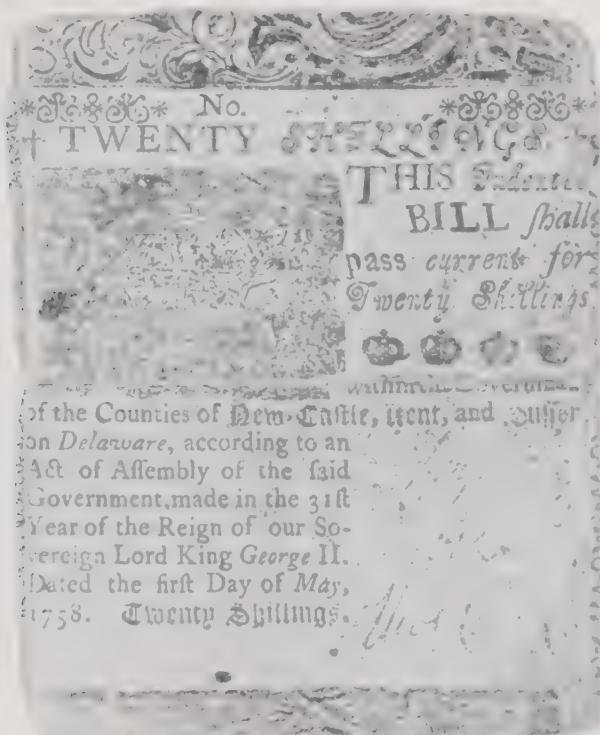 No.
TWENTY SHILLINGS
THIS Indented
BILL ſhall
paſs current for
Twenty Shillings
within the Government
of the Counties of New-Caſtle, Kent, and Suſſex
on Delaware, according to an
Act of Aſſembly of the ſaid
Government, made in the 31ſt
Year of the Reign of our So-
vereign Lord King George II.
Dated the firſt Day of May,
1758. Twenty Shillings.